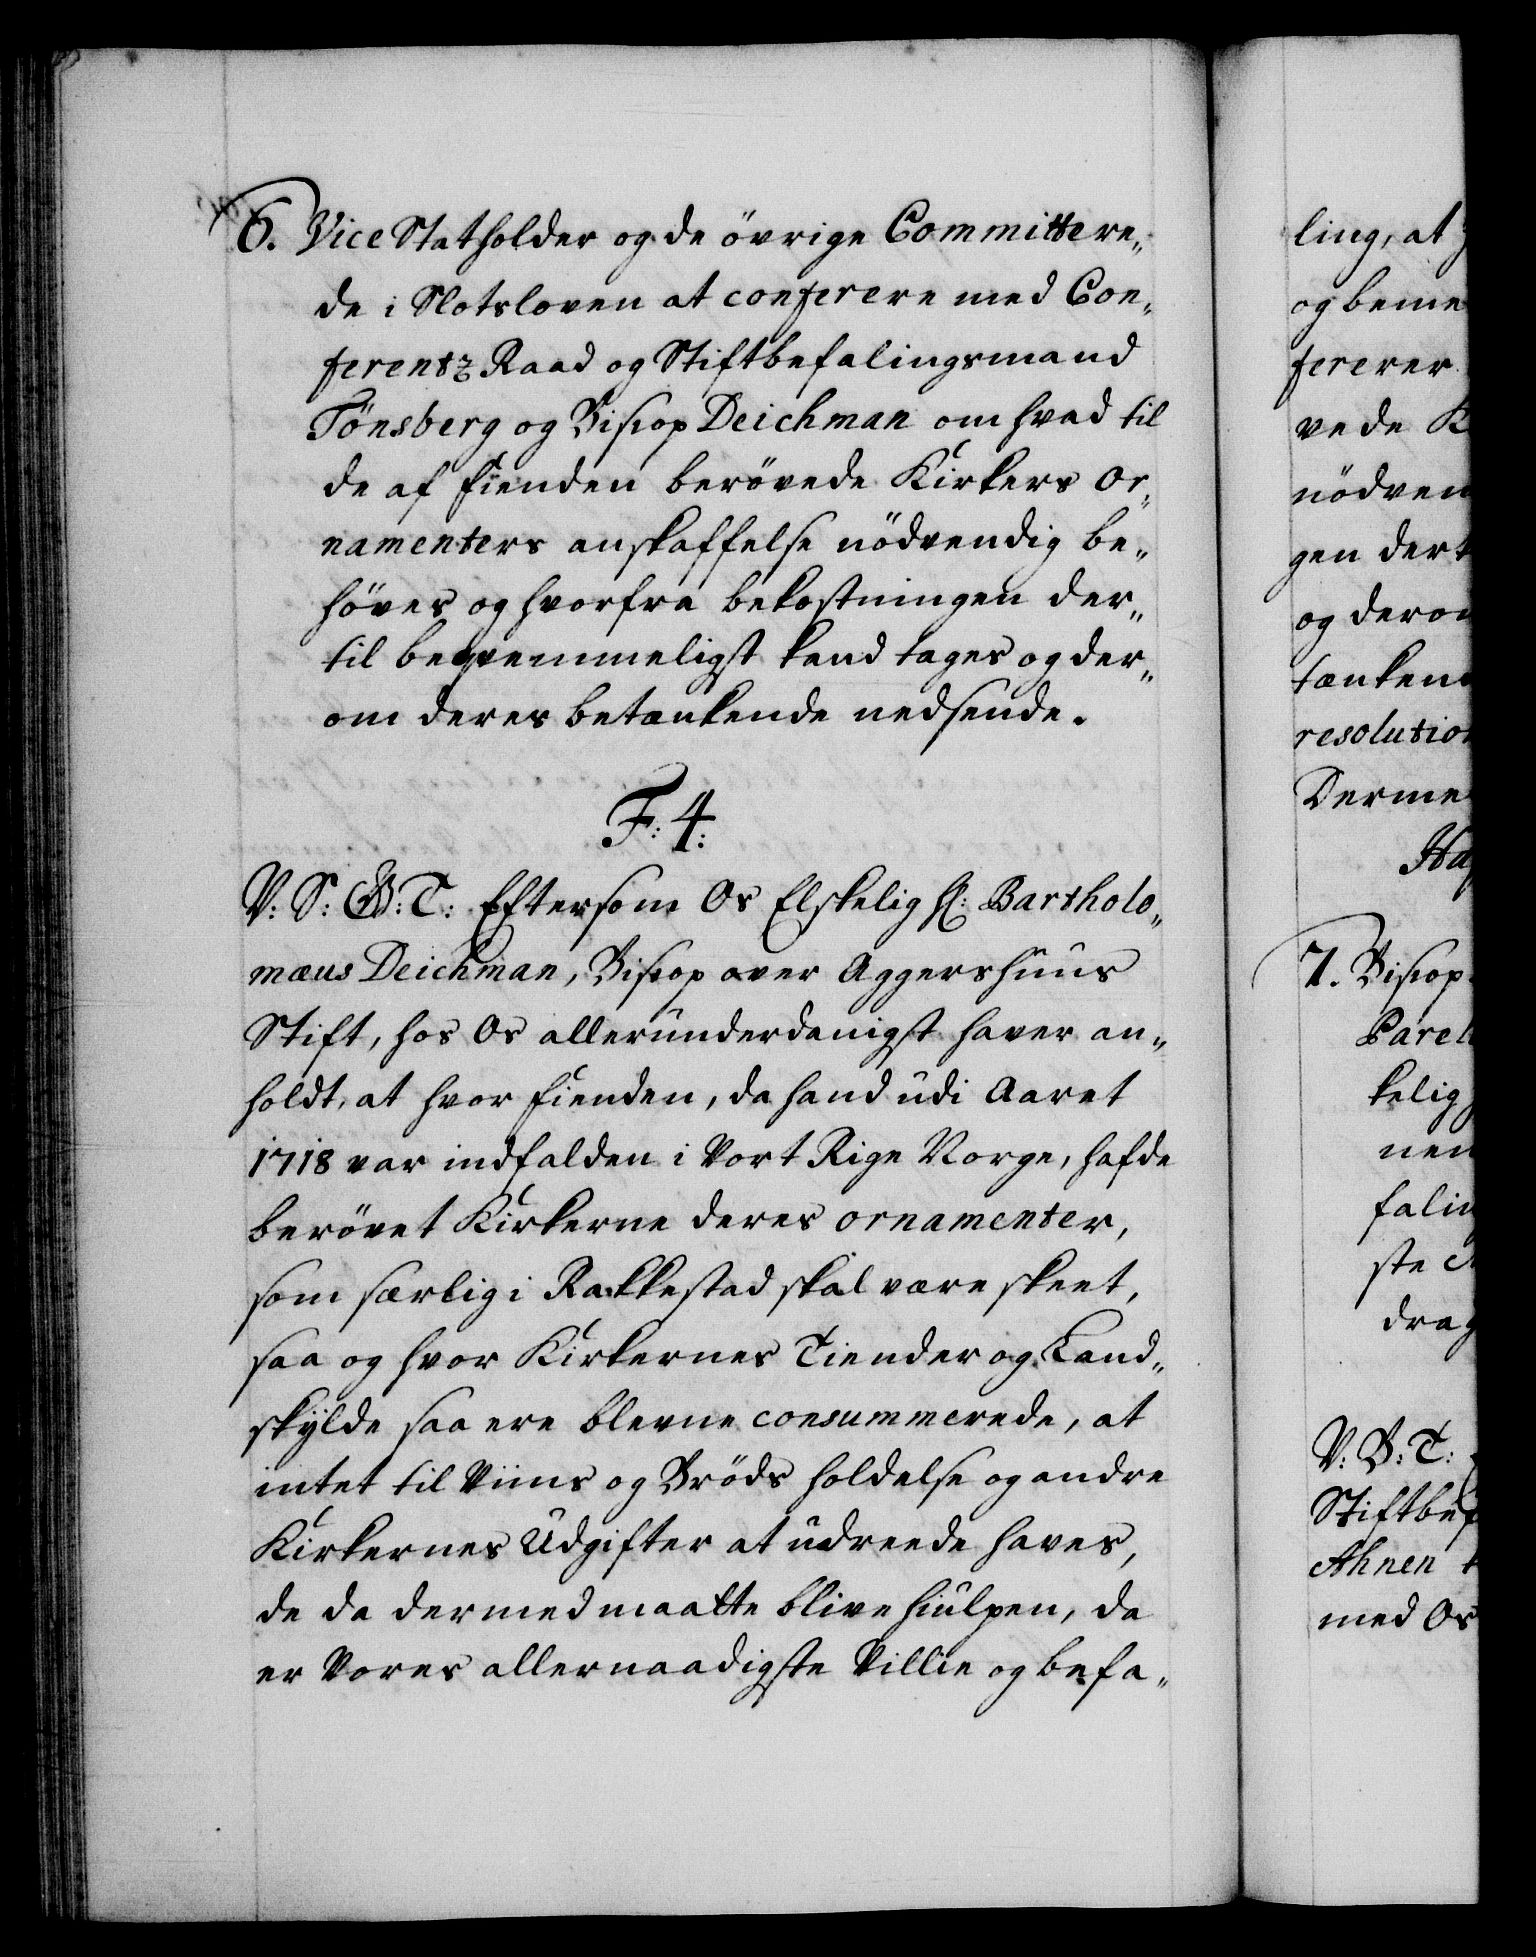 6. Vice Statholder og de övrige Committere„
de i Slotsloven at conferere med Con„
ferentz Raad og Stiftbefalingsmand
Tönsberg og Biscop Deichman om hvad til
de af fienden berövede Kirkers Or„
namenters anskaffelse nödvendig be„
höves og hvorfra bekostningen der„
til beqvemmeligst kand tages og der„
om deres betænkende nedsende.
F: 4:
V: S: G: T: Eftersom Os Elskelig H: Bartholo„
mæus Deichman, Biscop over Aggershuus
Stift, hos Os allerunderdanigst haver an„
holdt, at hvor fienden, da hand udi Aaret
1718 var indfalden i Vort Rige Norge, hafde
berövet Kirkerne deres ornamenter,
som særlig i Rakkestad skal være skeet,
saa og hvor Kirkernes Tiender og Land„
skylde saa ere blevne consummerede, at
intet til Viins og Bröds holdelse og andre
Kirkernes Udgifter at udreede haves,
de da dermed maatte blive hiulpen, da
er Vores allernaadigste Villie og befa„
ling, at
og beme
fererer
vede K
nödven
gen dert
og derom
tænken
resolution
Derme
Haf
7. Biscop
Parel
kelig
nen
falin
ste
drag
V: B: T:
Stiftbef
Ahnen
med Os